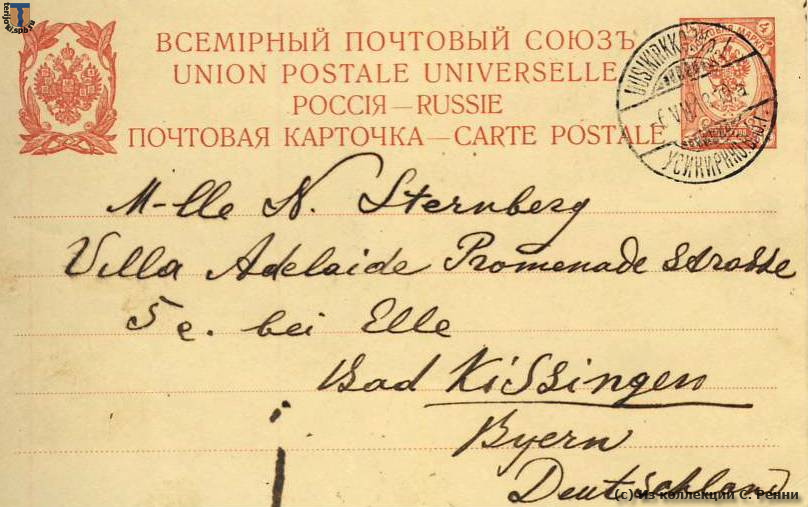 ВСЕМІРНЫЙ ПОЧТОВЫЙ СОЮЗЪ
UNION POSTALE UNIVERSELLE
РОССІЯ—RUSSIE
ПОЧТОВАЯ КАРТОЧКА—CARTE POSTALE
4
МАРКА
UUSIKIRKKO
УСИКИРККО
M-lle N. Sternberg
Villa Adelaide Promenade strasse
5 e. bei Elle
Bad Kissingen
Byern
Deutschland
(c) Из коллекции С. Ренни